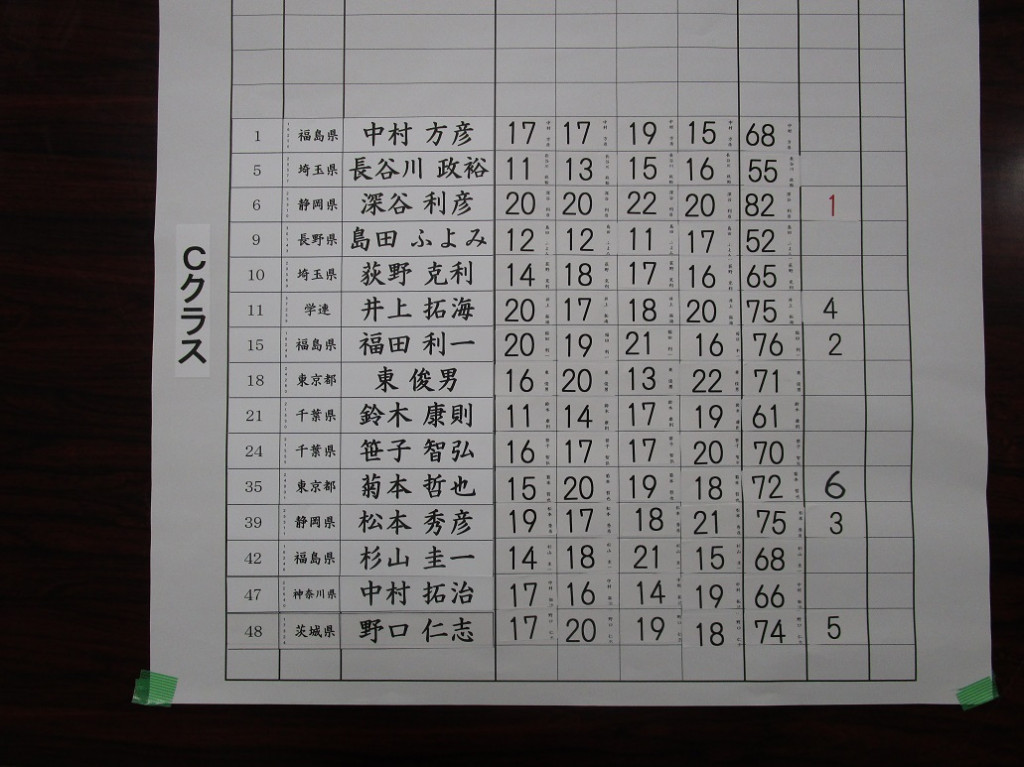 Cクラス
1 福島県 中村 方彦 17 17 19 15 68
5 埼玉県 長谷川 政裕 11 13 15 16 55
6 静岡県 深谷 利彦 20 20 22 20 82 1
9 長野県 島田 ふよみ 12 12 11 17 52
10 埼玉県 荻野 克利 14 18 17 16 65
11 学連 井上 拓海 20 17 18 20 75 4
15 福島県 福田 利一 20 19 21 16 76 2
18 東京都 東 俊男 16 20 13 22 71
21 千葉県 鈴木 康則 11 14 17 19 61
24 千葉県 笹子 智弘 16 17 17 20 70
35 東京都 菊本 哲也 15 20 19 18 72 6
39 静岡県 松本 秀彦 19 17 18 21 75 3
42 福島県 杉山 圭一 14 18 21 15 68
47 神奈川県 中村 拓治 17 16 14 19 66
48 茨城県 野口 仁志 17 20 19 18 74 5